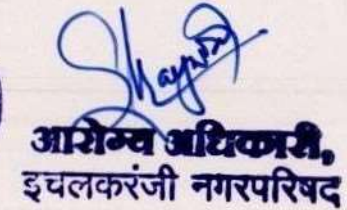 आरोग्य अधिकारी,
इचलकरंजी नगरपरिषद